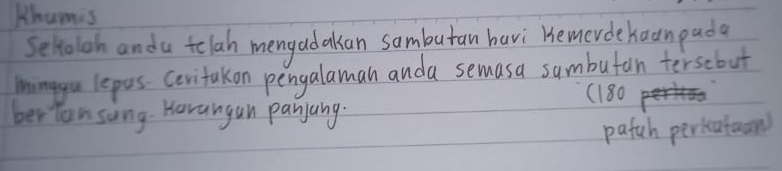 Khumis
Sekolah andu telah mengadakan sambutan hari Kemerdekaan pada
minggu lepas. Ceritakon pengalaman anda semasa sambutan tersebut
berlansung. Karangan panjang.
(180
patuh perkataan)